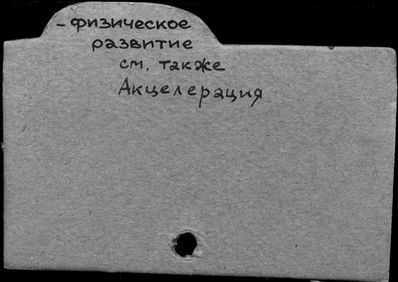 - физическое
развитие
см. также
Акцелерация